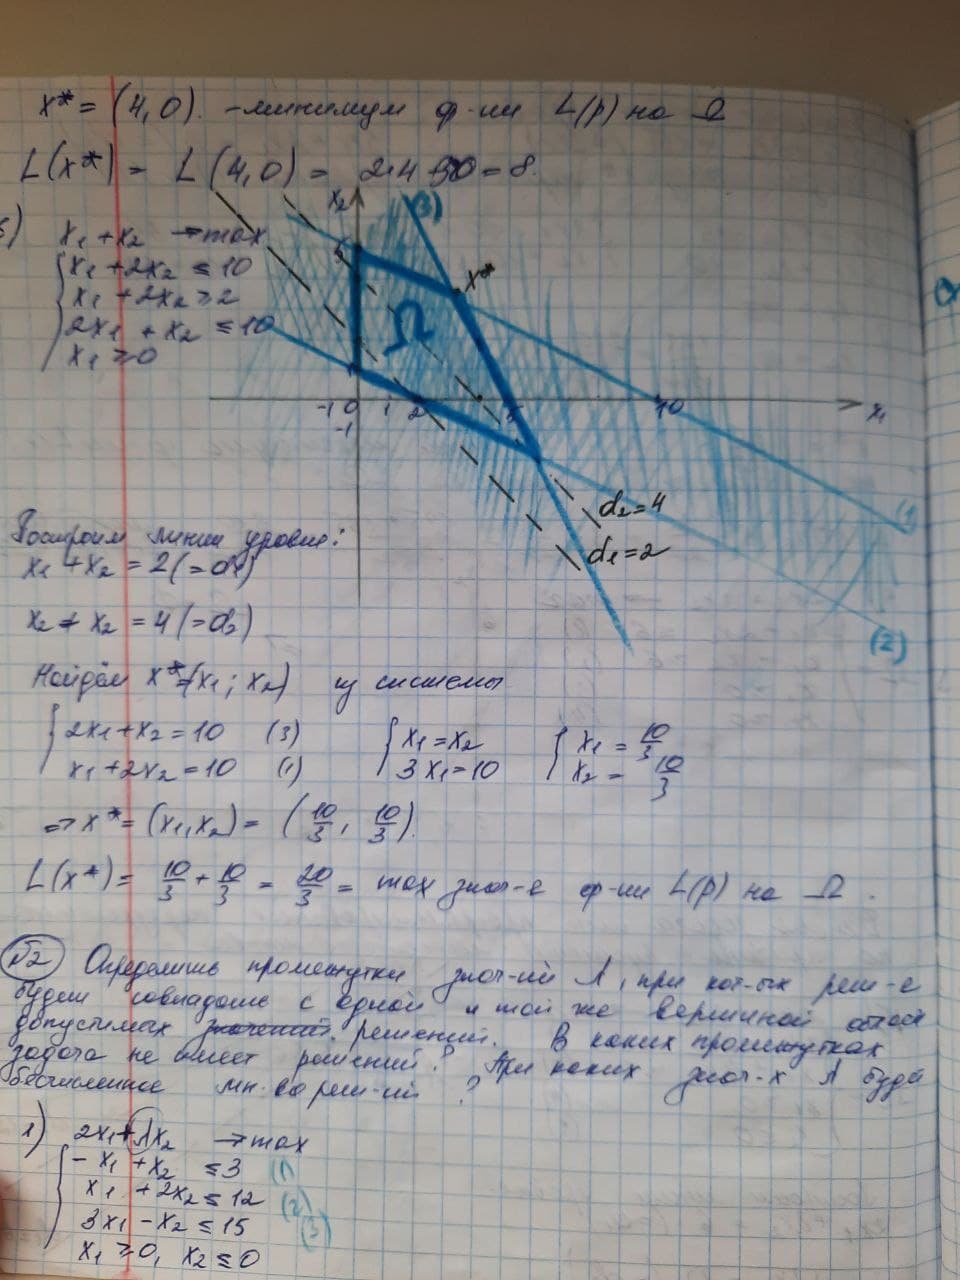 x* = (4,0). - минимум ф-ии L(p) на Ω
L(x*) = L(4,0) = 2·4+30 = 8.
x₁ + x₂ → max
x₁ + 2x₂ ≤ 10
x₁ + 2x₂ ≥ 2
2x₁ + x₂ ≤ 10
x₁ ≥ 0
x₂
(3)
5
x*
Ω
-1 0 1 2 5 10 x₁
-1
d₂=4
(1)
d₁=2
(2)
Построим линии уровня:
x₁ + x₂ = 2 (=d₁)
x₂ + x₂ = 4 (=d₂)
Найдём x*=(x₁; x₂) из системы
2x₁+x₂ = 10 (3) x₁ = x₂ x₁ = 10/3
x₁+2x₂ = 10 (1) 3x₁ = 10 x₂ = 10/3
⇒ x* = (x₁, x₂) = (10/3, 10/3).
L(x*) = 10/3 + 10/3 = 20/3 = max знач-е ф-ии L(p) на Ω.
№2 Определить промежутки знач-ий λ, при кот-ых реш-е
будет совпадать с одной и той же вершиной
допустимых значений. решений. В каких промежутках
задача не имеет решений? При каких знач-х λ буде
бесчисленное мн-во реш-ий ?
1) 2x₁+λx₂ → max
-x₁ + x₂ ≤ 3 (1)
x₁ + 2x₂ ≤ 12 (2)
3x₁ - x₂ ≤ 15 (3)
x₁ ≥ 0, x₂ ≤ 0